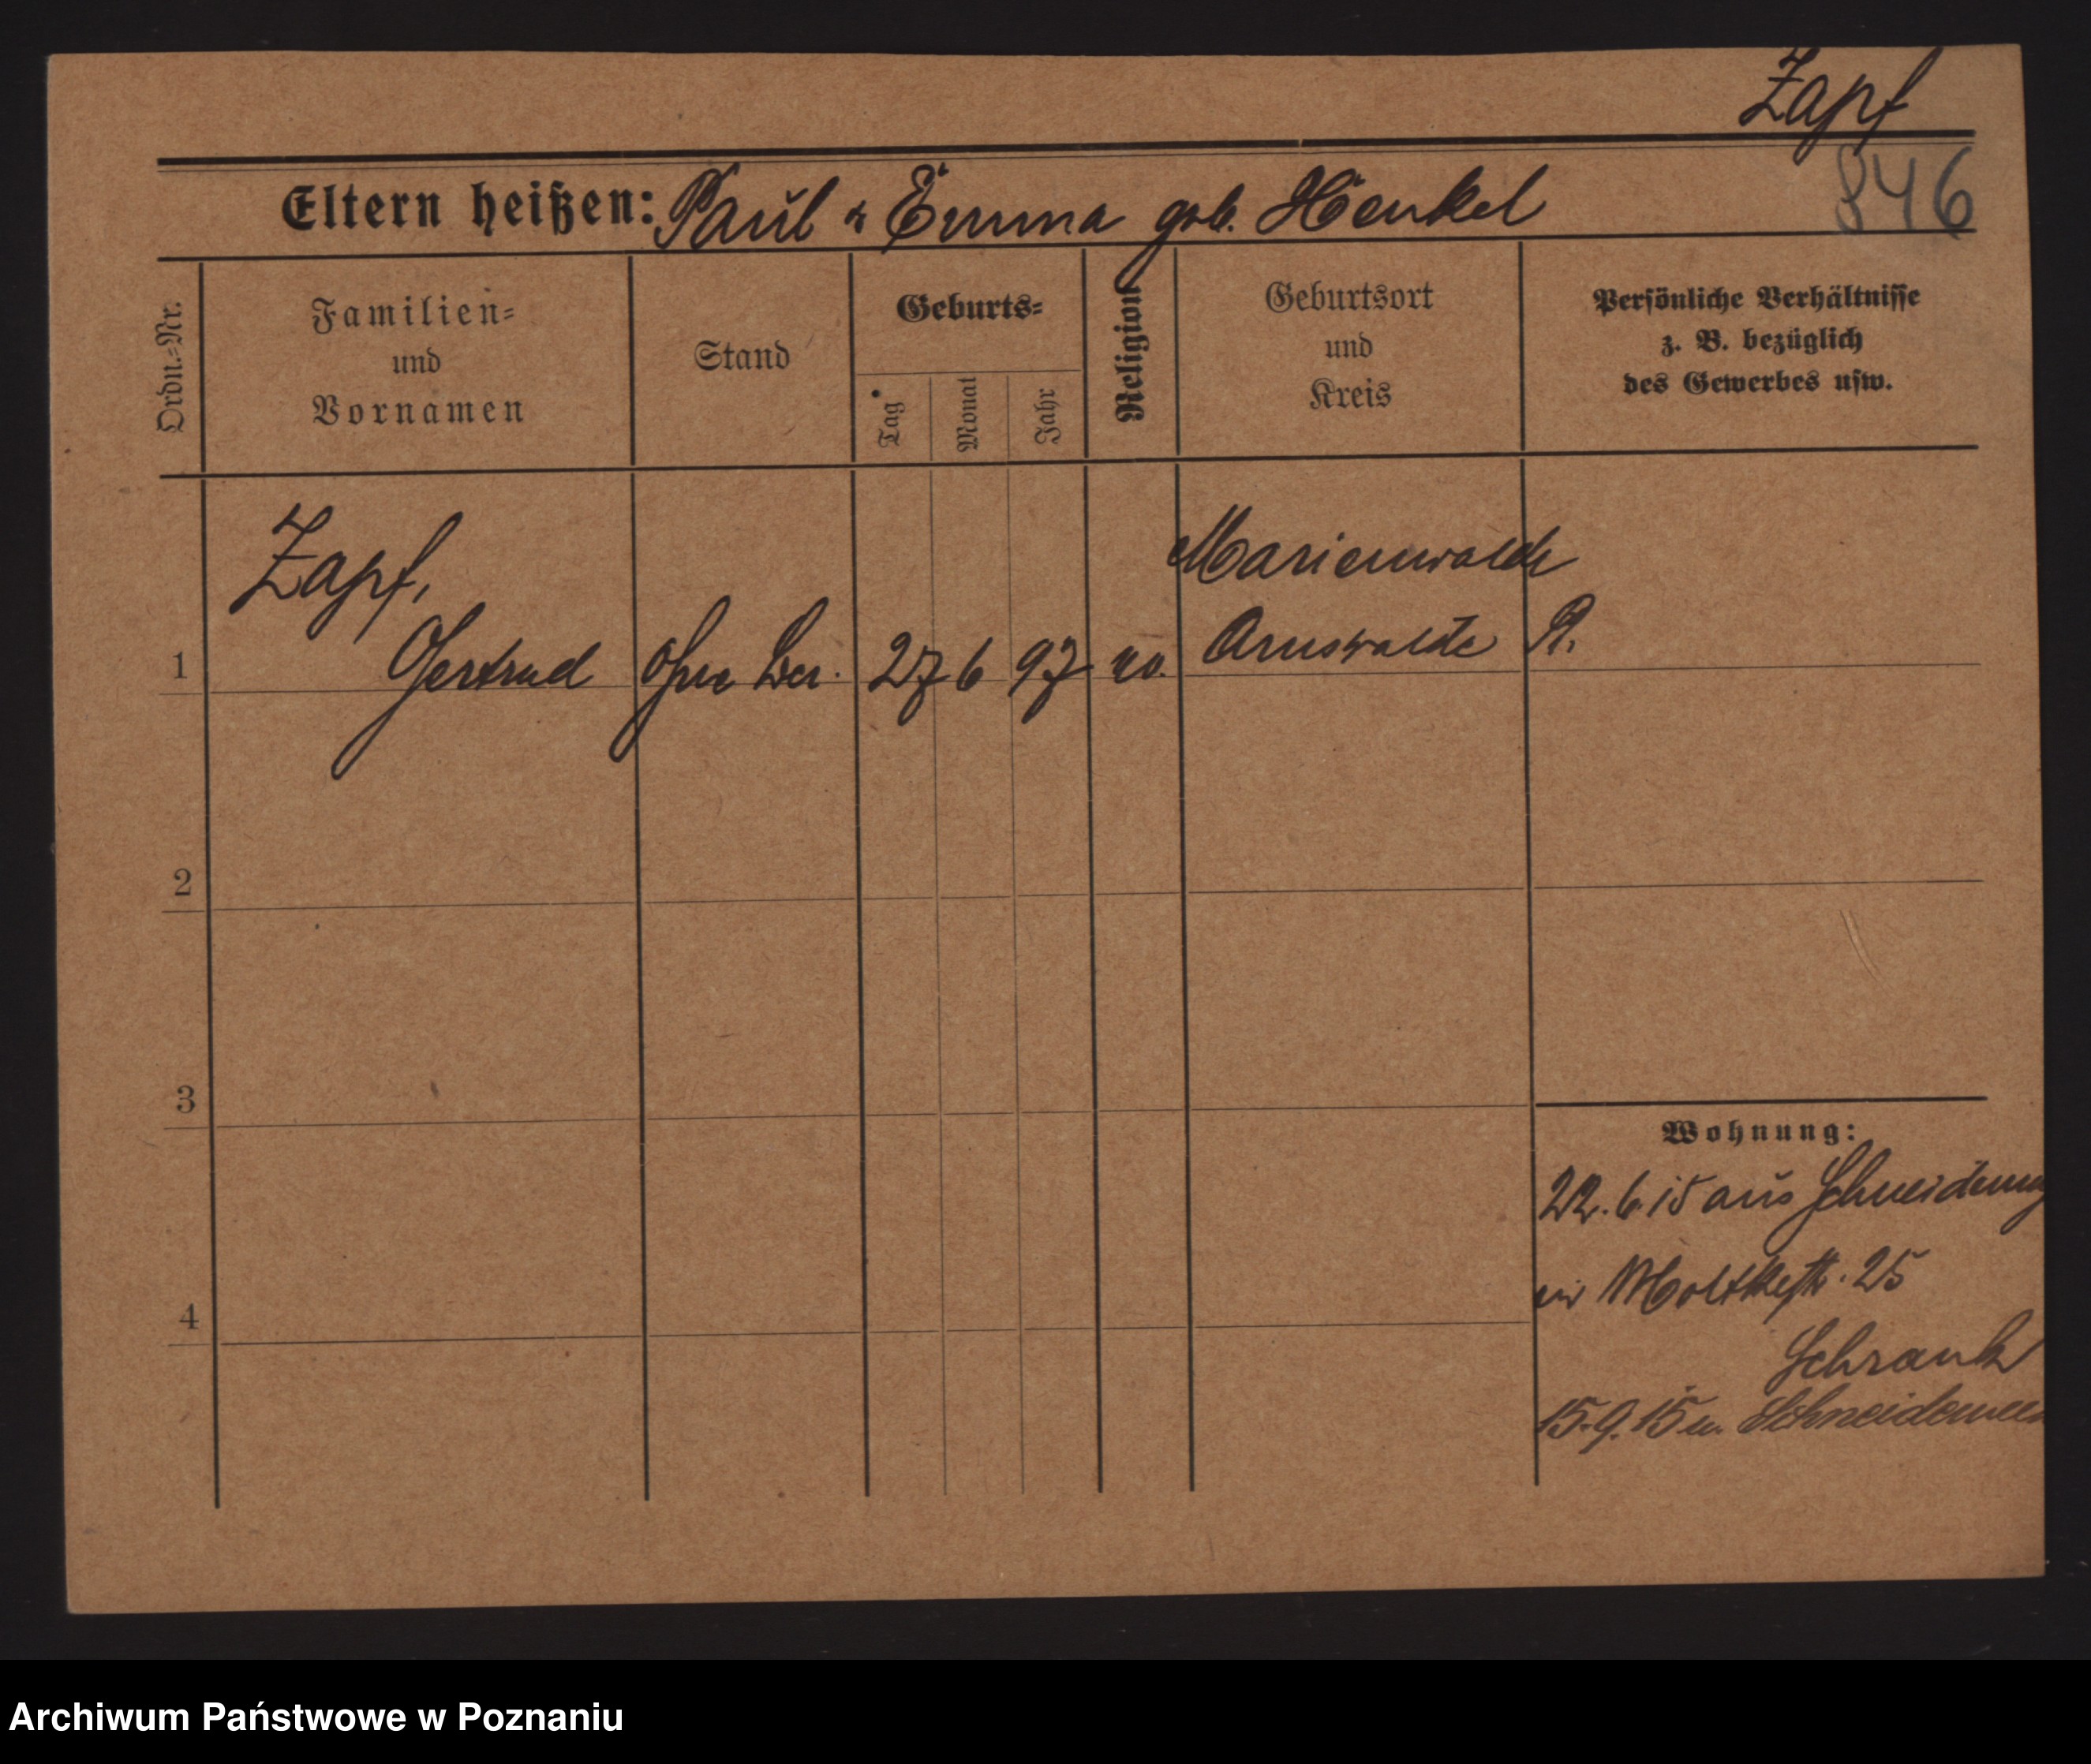 Zapf
846
Eltern heißen: Paul u Emma geb. Henkel
Ordn.-Nr.
Familien-
und
Vornamen
Stand
Geburts-
Tag
Monat
Jahr
Religion
Geburtsort
und
Kreis
Persönliche Verhältnisse
z. B. bezüglich
des Gewerbes usw.
Zapf,
Marienwalde
1 Gertrud ohne 27 6 97 Arnswalde
2
3
4
Wohnung:
22.6.15 aus Schneidemüh
Moltkestr. 25
Schrank
15.9.15 n. Schneidemü
Archiwum Państwowe w Poznaniu